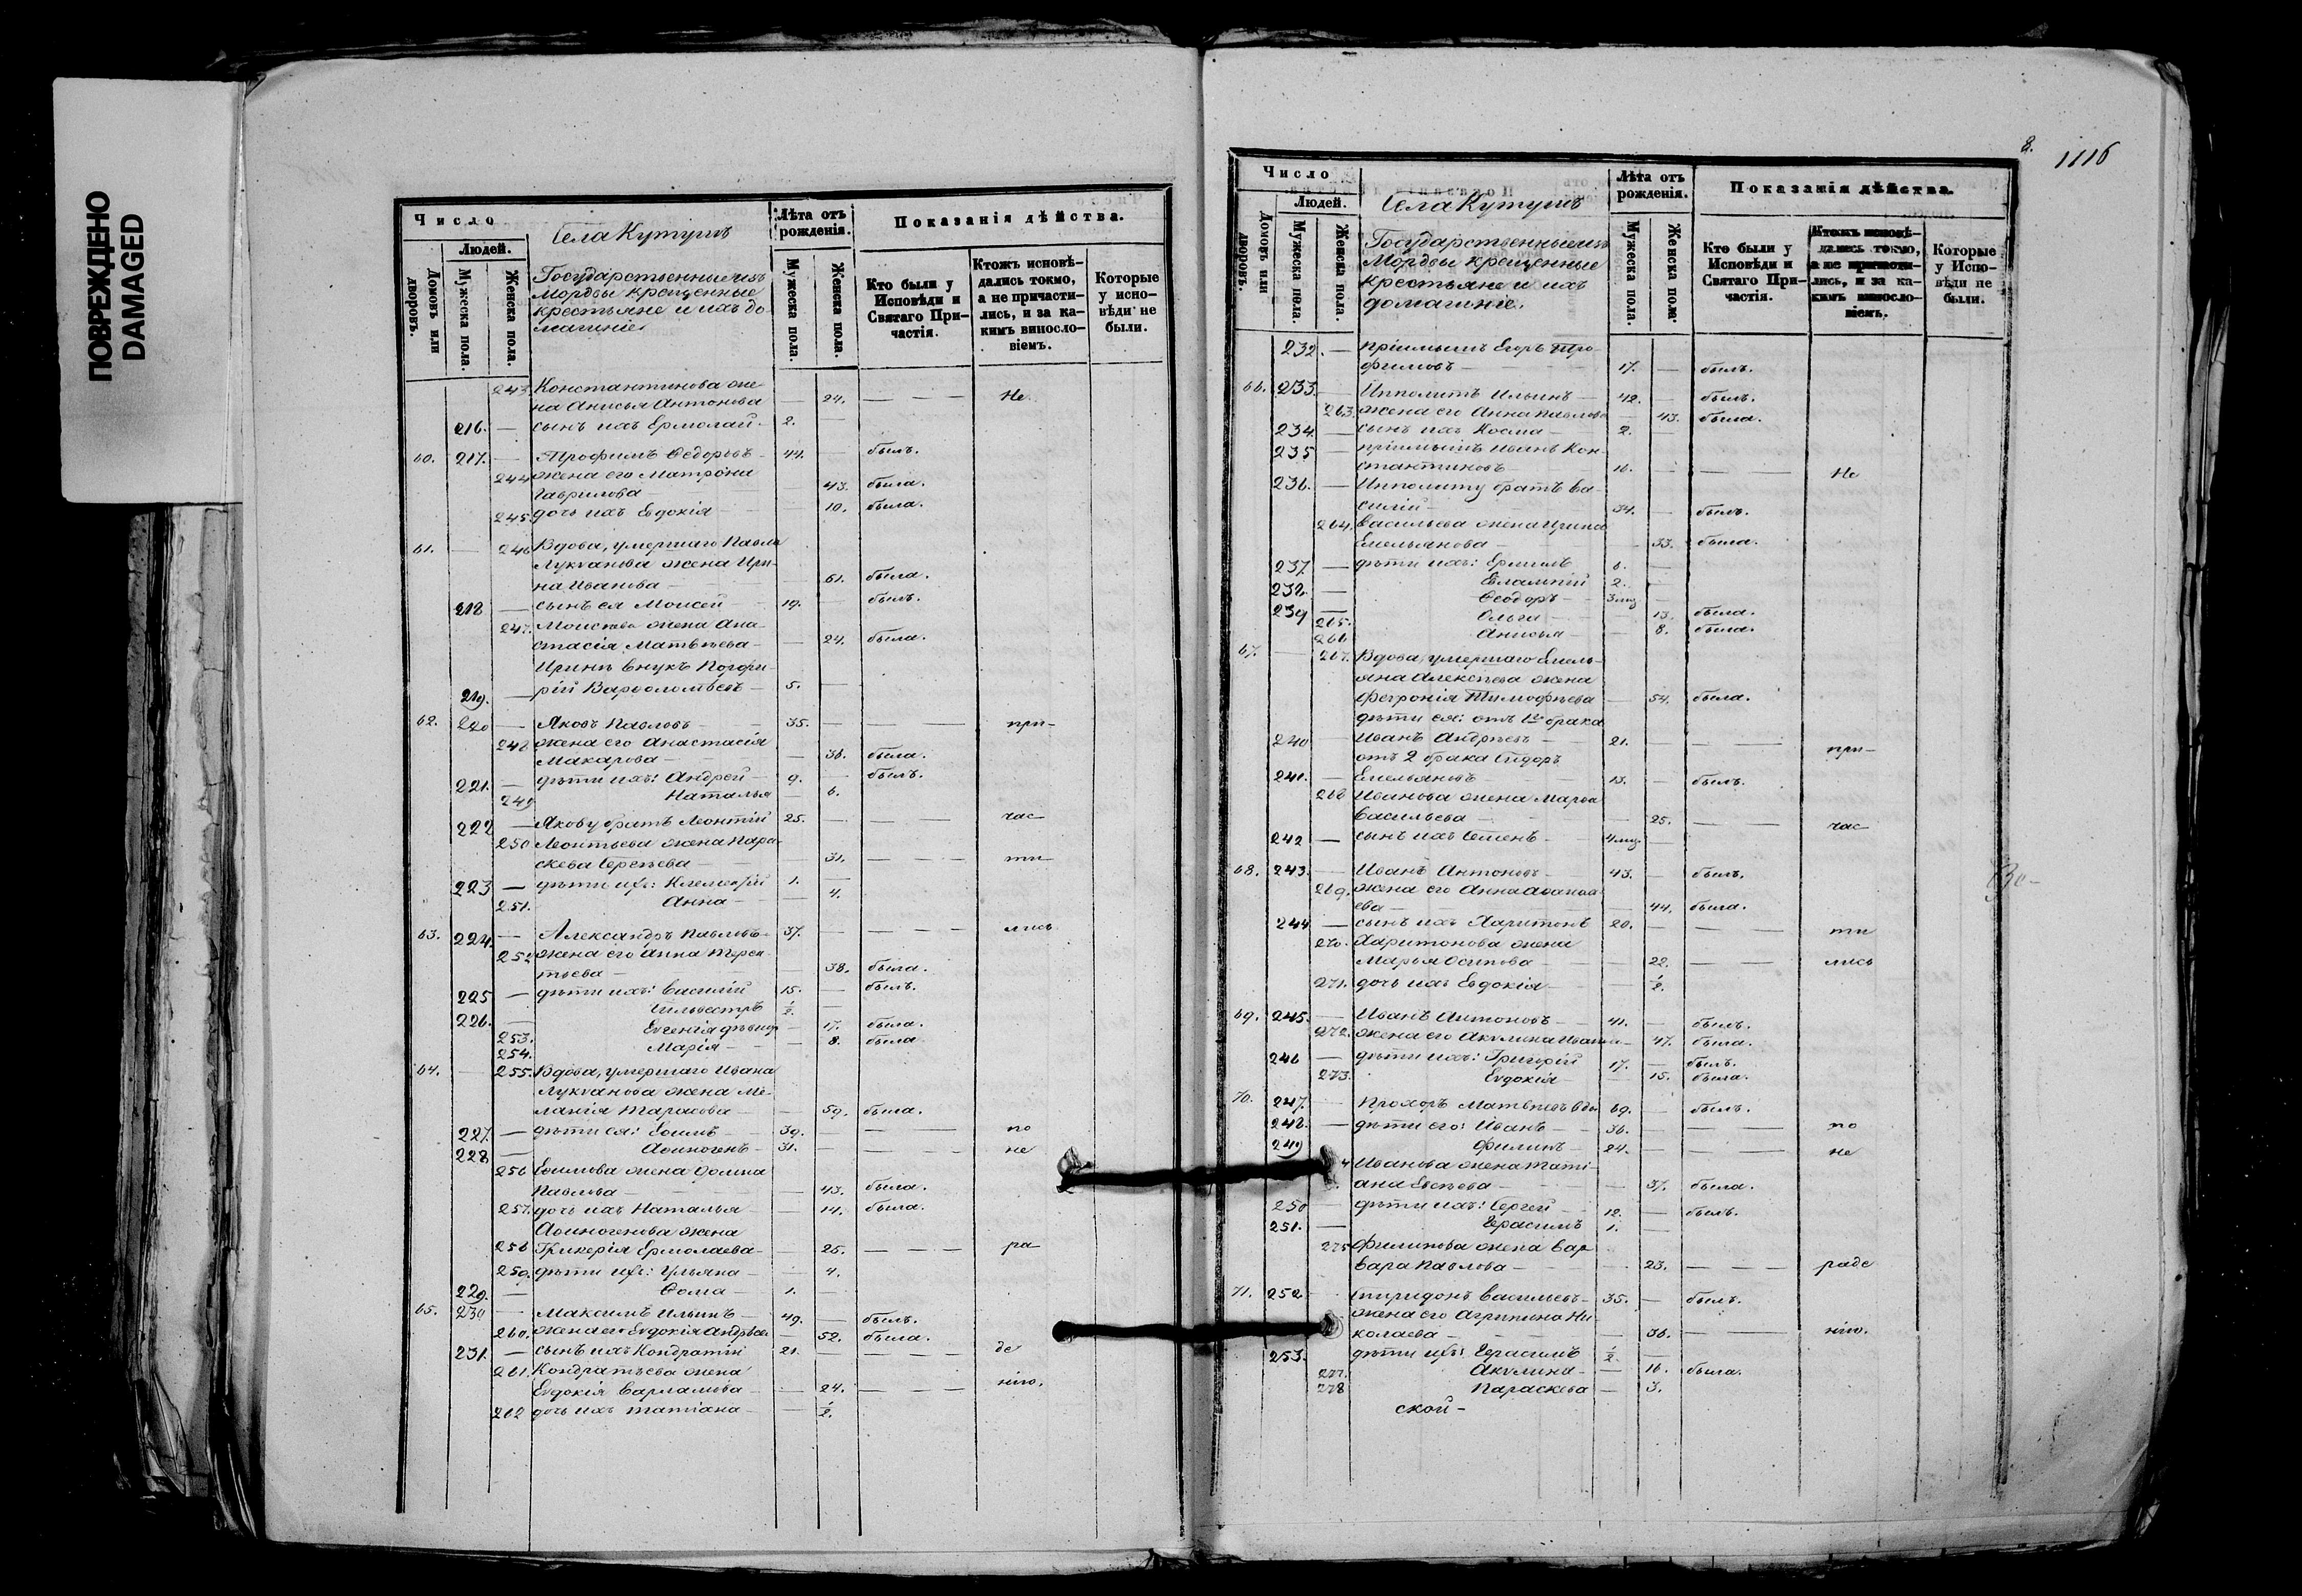 ПОВРЕЖДЕНО
DAMAGED
8. 1116
Число
Людей.
Домовъ или дворовъ.
Мужеска пола.
Женска пола.
Села Кутушъ
Государственные изъ
Мордвы крещенные
крестьяне и ихъ до
машніе.
Лѣта отъ рожденія.
Мужеска пола.
Женска пола.
Показанія дѣйства.
Кто были у Исповѣди и Святаго Причастія.
Ктожъ исповѣ-
дались токмо,
а не причасти-
лись, и за ка-
кимъ виносло-
віемъ.
Которые
у испо-
вѣди не
были.
243. Константинова же-
на Анисья Антонова — 24. — — Не
216. — сынъ ихъ Ермолай 2. —
60. 217. — Трофимъ Ѳедоровъ 44. — былъ.
244 жена его Матрона
Гаврилова — 43. была.
245. дочь ихъ Евдокія — 10. была.
61. — 246 Вдова, умершаго Павла
Лукіанова жена Ири-
на Иванова — 61. была.
218 — сынъ ея Моисей — 19. — былъ.
247. Моисеева жена Ана-
стасія Матвѣева — 24. была.
Иринѣ внукъ Порфи-
219. — рій Варѳоломѣевъ — 5. —
62. 220 — Яковъ Павловъ — 35. — — — при-
248 жена его Анастасія
Макарова — 36. была.
221. — дѣти ихъ: Андрей — 9. — былъ.
249 Наталья — 6.
222 — Якову братъ Леонтій 25. — — — час-
250 Леонтьева жена Пара-
скева Сергѣева — 31. — — ти-
223 — дѣти ихъ: Климентій 1. —
251. Анна — 4.
63. 224. — Александръ Павловъ 37. — — — лись
252 жена его Анна Терен-
тьева — 38. была.
225 — дѣти ихъ: Василій 15. — былъ.
226. — Сильвестръ ½ —
253. Евгенія дѣвица — 17. была.
254. Марія — 8. была
64. — 255. Вдова, умершаго Ивана
Лукіанова жена Ме-
ланія Тарасова — 59. была.
227. — дѣти ея: Ефимъ — 39. — — по
228 — Аѳиногенъ — 31. — — — не
256 Ефимова жена Домна
Павлова — 43. была.
257. дочь ихъ Наталья — 14. была.
Аѳиногенова жена
258 Гликерія Ермолаева — 25. — — — ра-
259. дѣти ихъ: Ульяна — 4.
229. — Ѳома — 1. —
65. 230 — Максимъ Ильинъ — 49. — былъ.
260. жена его Евдокія Андрѣева — 52. была.
231. — сынъ ихъ Кондратій 21. — — — де
261. Кондратьева жена
Евдокія Варламова — 24. — — — нію.
262 дочь ихъ Татіана — ½.
Число
Людей.
Домовъ или дворовъ.
Мужеска пола.
Женска пола.
Села Кутушъ
Государственные изъ
Мордвы крещенные
крестьяне и ихъ
домашніе.
Лѣта отъ рожденія.
Мужеска пола.
Женска пола.
Показанія дѣйства.
Кто были у Исповѣди и Святаго Причастія.
Ктожъ исповѣ-
дались токмо,
а не причасти-
лись, и за ка-
кимъ винosло-
віемъ.
Которые
у Испо-
вѣди не
были.
232. — пріимышъ Егоръ Тро-
фимовъ — 17. — былъ.
66. 233. Ипполитъ Ильинъ — 42. — былъ.
263. жена его Анна Павлова — 43. была.
234. — сынъ ихъ Косма — 2. —
235 — пріимышъ Иванъ Кон-
стантиновъ — 16. — — — Не
236. — Ипполиту братъ Ва-
силій — 34. — былъ.
264. Васильева жена Ирина
Емельянова — 33. была.
237. — дѣти ихъ: Ермилъ 6. —
238. — Евлампій 2. —
239 — Ѳеодоръ — 3 мц. —
265. Ольга — 13. была.
266 Анисья — 8. была.
67. — 267. Вдова, умершаго Емель-
яна Алексѣева жена
Феѵронія Тимофѣева — 54. была.
дѣти ея: отъ 1го брака
240 Иванъ Андрѣевъ — 21. — — — при-
отъ 2 брака Сидоръ
241. — Емельяновъ — 13. — былъ.
268 Иванова жена Марѳа
Васильева — 25. — — час-
242 — сынъ ихъ Семенъ — 4 мц. —
68. 243. — Иванъ Антоновъ — 43. — былъ.
269. жена его Анна Аѳанась-
ева — 44. была.
244 — сынъ ихъ Харитонъ 20. — — — ти
270. Харитонова жена
Марья Осипова — 22. — — лись
271. дочь ихъ Евдокія — ½.
69. 245. — Иванъ Антоновъ — 41. — былъ.
272. жена его Акулина Иванова — 47. была.
246 — дѣти ихъ: Григорій 17. — былъ.
273. Евдокія — 15. была.
70. 247. — Прохоръ Матвѣевъ вдов 69. — былъ.
248. — дѣти его: Иванъ — 36. — — — по
249 Филипъ — 24. — — — не
4 Иванова жена Тати-
ана Евсѣева — 37. была.
250 — дѣти ихъ: Сергей — 12. — былъ.
251. — Герасимъ 1. —
275 Филипова жена Вар-
вара Павлова — 23. — — — раде
71. 252. Спиридонъ Васильевъ — 35. — былъ.
жена его Агрипина Ни-
колаева — 36. — — нію.
253. дѣти ихъ: Герасимъ ½. —
277. Акулина — 16. была.
278 Параскева — 3.
ской —